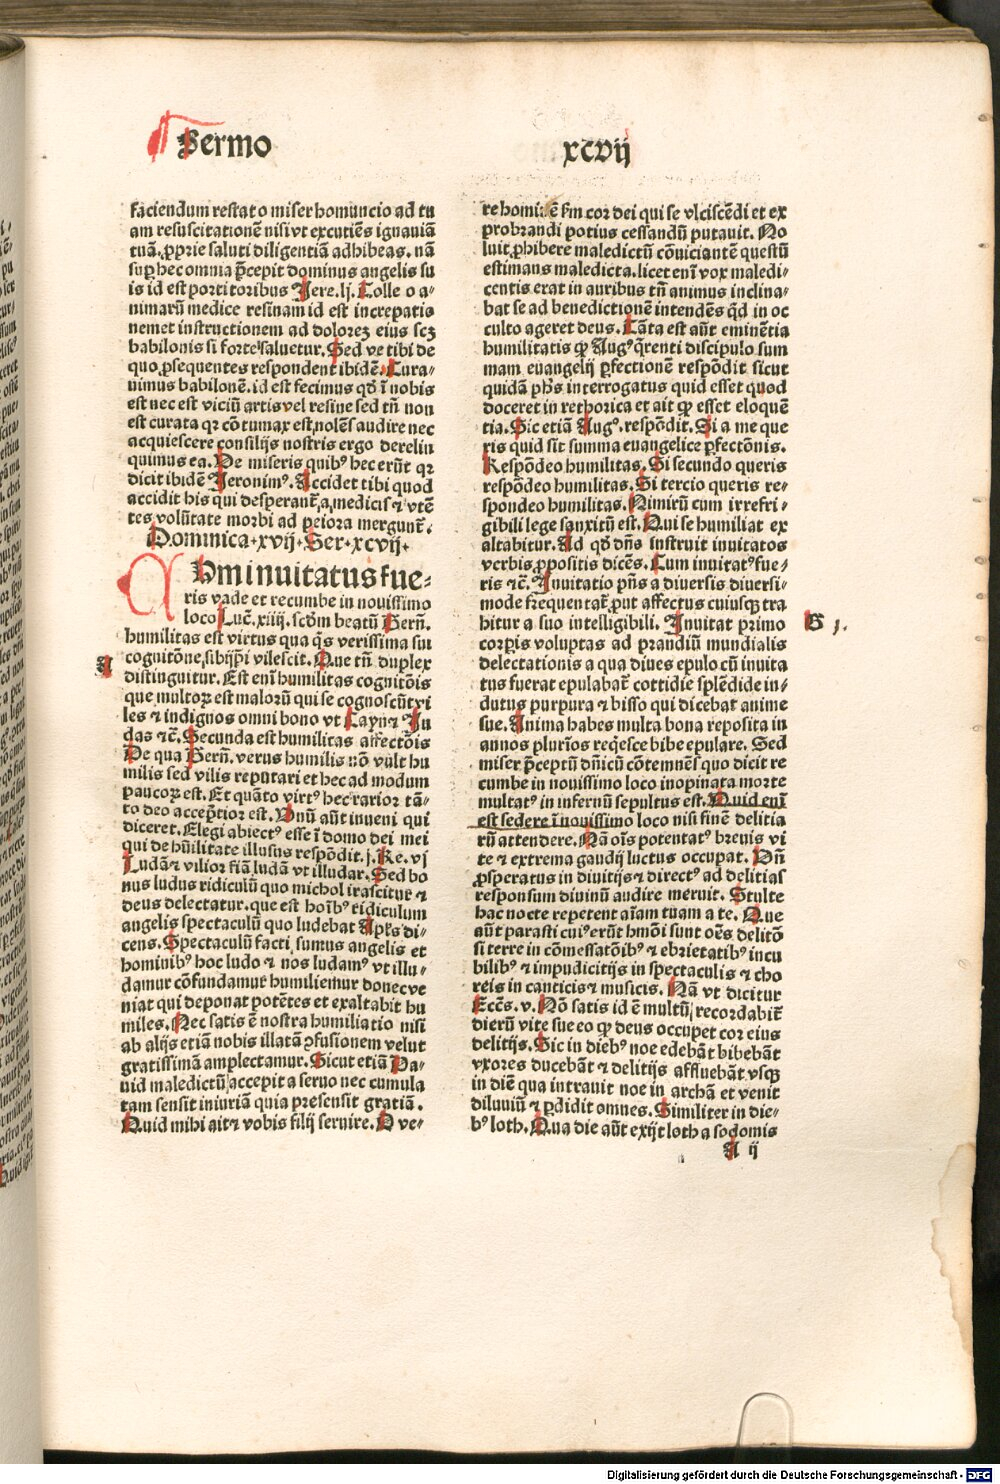 Sermo
xcvij
faciendum restat o miser homuncio ad tu
am resuscitationē nisi vt excutiēs ignauiā
tuā. ꝓprie saluti diligentiā adhibeas. nā
suꝑ hec omnia p̄cepit dominus angelis su
is id est portitoribus Jere. lj. Tolle o a-
nimarū medice resinam id est increpatio
nemet instructionem ad dolorez eius scz
babilonis si forte saluetur. Sed ve tibi de
quo ꝓsequentes respondent ibidē. Cura-
uimus babilonē. id est fecimus qd̄ ī nobis
est nec est viciū artis vel resine sed tn̄ non
est curata qꝛ cōtumax est, nolēs audire nec
acquiescere consilijs nostris ergo derelin
quimus ea. De miseris quibꝰ hec erūt qꝛ
dicit ibidē Jeronimꝰ. Accidet tibi quod
accidit his qui desperant᷑, a, medicis ⁊ vtē
tes volūtate morbi ad peiora mergunt᷑.
Dominica xvij. Ser. xcvij.
Vm inuitatus fue-
ris vade et recumbe in nouissimo
loco Luc̄. xiiij. scd̄m beatū Bern̄.
humilitas est virtus qua qͥs verissima sui
cognitōne, sibijp̄i vilescit. Que tn̄ duplex
distinguitur. Est enī humilitas cognitōis
que multoꝝ est malorū qui se cognoscūt vi
les ⁊ indignos omni bono vt Cayn ⁊ Ju
das ⁊c̄. Secunda est humilitas affectōis
De qua Bern̄. verus humilis nō vult hu
milis sed vilis reputari et hec ad modum
paucoꝝ est. Et quāto virtꝰ hec rarior tā-
to deo acceptior est. Vnū aūt inueni qui
diceret. Elegi abiectꝰ esse ī domo dei mei
qui de hūilitate illusus respōdit. j. Re. vj
Ludā ⁊ vilior fiā ludā vt illudar. Sed bo
nus ludus ridiculū quo michol irascitur ⁊
deus delectatur. que est hoībꝰ ridiculum
angelis spectaculū quo ludebat Apl̄s di-
cens. Spectaculū facti sumus angelis et
hominibꝰ hoc ludo ⁊ nos ludamꝰ vt illu-
damur cōfundamur humiliemur donec ve
niat qui deponat potētes et exaltabit hu
miles. Nec satis ē nostra humiliatio nisi
ab alijs etiā nobis illatā ꝯfusionem velut
gratissimā amplectamur. Sicut etiā Da-
uid maledictū accepit a seruo nec cumula
tam sensit iniuriā quia presensit gratiā.
Quid mihi ait ⁊ vobis filij seruire. O ve-
A
re homīnē scd̄m cor dei qui se vlciscēdi et ex
probrandi potius cessandū putauit. No
luit ꝓhibere maledictū cōuiciantē questū
estimans maledicta. licet enī vox maledi-
centis erat in auribus tn̄ animus inclina-
bat se ad benedictionē intendēs qd̄ in oc
culto ageret deus. Tāta est aūt eminētia
humilitatis ꝙ Augꝰ q̄renti discipulo sum
mam euangelij ꝑfectionē respōdit sicut
quidā ph̄s interrogatus quid esset quod
doceret in rethorica et ait ꝙ esset eloquē
tia. Sic etiā Augꝰ. respōdit. Si a me que
ris quid sit summa euangelice ꝑfectōnis.
Respōdeo humilitas. Si secundo queris
respōdeo humilitas. Si tercio queris re-
spondeo humilitas. Nimirū cum irrefri-
gibili lege sanxitū est. Qui se humiliat ex
altabitur. Ad qd̄ dn̄s instruit inuitatos
verbis ꝓpositis dicēs. Cum inuitatꝰ fue-
ris ⁊c̄. Inuitatio pn̄s a diuersis diuersi-
mode frequentat᷑, put affectus cuiusqꝫ tra
hitur a suo intelligibili. Inuitat primo
corꝑis voluptas ad prandiū mundialis
delectationis a qua diues epulo cū inuita
tus fuerat epulabat᷑ cottidie splēdide in-
dutus purpura ⁊ bisso qui dicebat anime
sue. Anima habes multa bona reposita in
annos plurīos reqͥesce bibe epulare. Sed
miser p̄ceptū dn̄icū cōtemnēs quo dicit re
cumbe in nouissimo loco inopinata morte
multatꝰ in infernū sepultus est. Quid enī
est sedere ī nouissimo loco nisi finē delitia
rū attendere. Nā oīs potentatꝰ breuis vi
te ⁊ extrema gaudij luctus occupat. Dn̄
ꝓsperatus in diuitijs ⁊ directꝰ ad delitias
responsum diuinū audire meruit. Stulte
hac nocte repetent aīam tuam a te. Que
aūt parasti cuiꝰ erūt hmōi sunt oēs delitō
si terre in cōmessatōibꝰ ⁊ ebrietatibꝰ incu
bilibꝰ ⁊ impudicitijs in spectaculis ⁊ cho
reis in canticis ⁊ musicis. Nā vt dicitur
Eccēs. v. Nō satis id ē multū, recordabit᷑
dierū vite sue eo ꝙ deus occupet cor eius
delitijs. Sic in diebꝰ noe edebāt bibebāt
vxores ducebāt ⁊ delitijs affluebāt vsqꝫ
in diē qua intrauit noe in archā et venit
diluuiū ⁊ ꝑdidit omnes. Similiter in die-
bꝰ loth. Qua die aūt exijt loth a sodomis
B j.
A ij
Digitalisierung gefördert durch die Deutsche Forschungsgemeinschaft - DFG